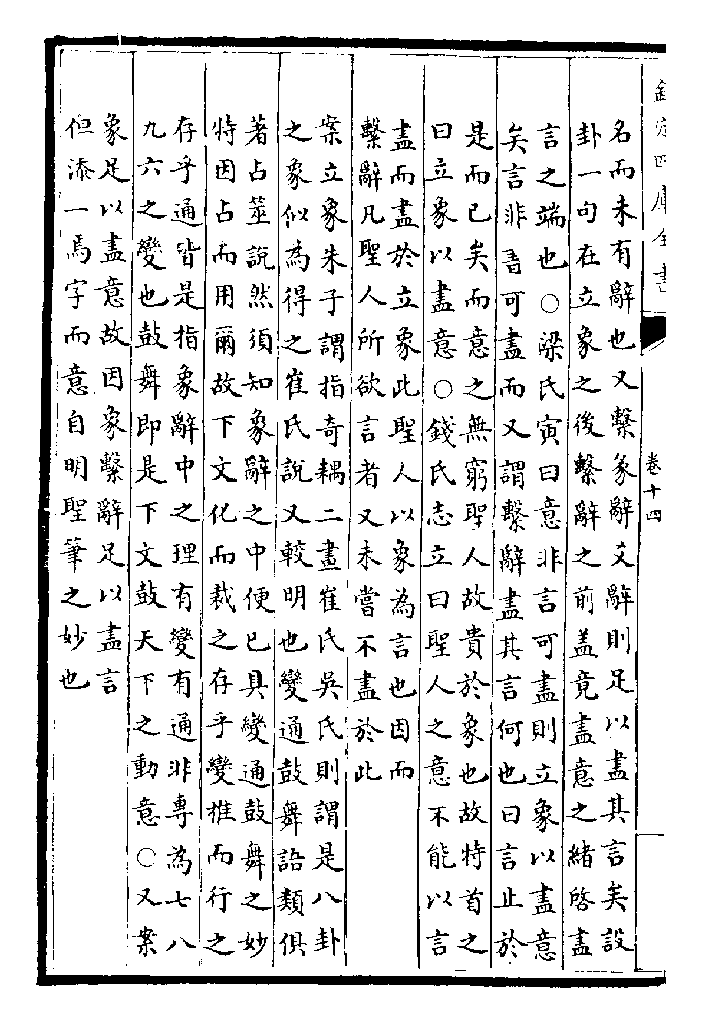 欽定四庫全書
卷十四
名而未有辭也又繫彖辭爻辭則足以盡其言矣設
卦一句在立象之後繫辭之前盖竟盡意之緒啓盡
言之端也○梁氏寅曰意非言可盡則立象以盡意
矣言非書可盡而又謂繫辭盡其言何也曰言止於
是而已矣而意之無窮聖人故貴於象也故特首之
曰立象以盡意○錢氏志立曰聖人之意不能以言
盡而盡於立象此聖人以象為言也因而
繫辭凡聖人所欲言者又未嘗不盡於此
案立象朱子謂指奇耦二畫崔氏吳氏則謂是八卦
之象似為得之崔氏說又較明也變通鼓舞語類俱
著占筮說然須知象辭之中便已具變通鼓舞之妙
特因占而用爾故下文化而裁之存乎變推而行之
存乎通皆是指象辭中之理有變有通非專為七八
九六之變也鼓舞即是下文鼓天下之動意○又案
象足以盡意故因象繫辭足以盡言
但添一焉字而意自明聖筆之妙也